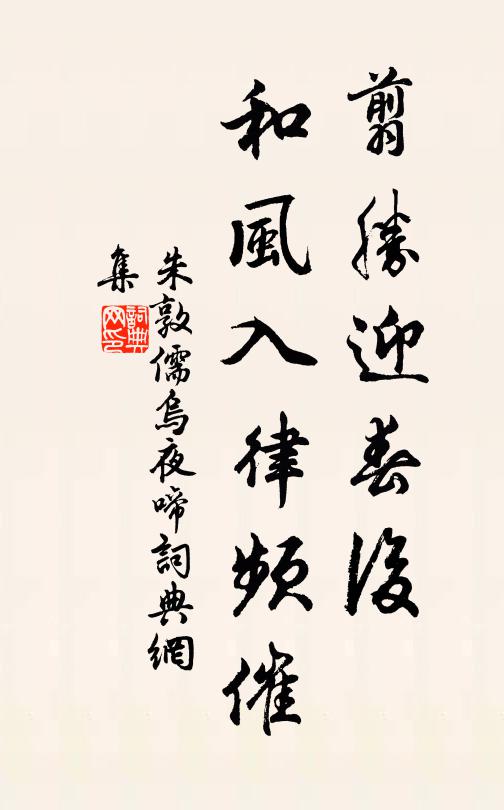 翦勝迎春後
和風入律頻催
朱敦儒烏夜啼詞典網
集
詞典
网印